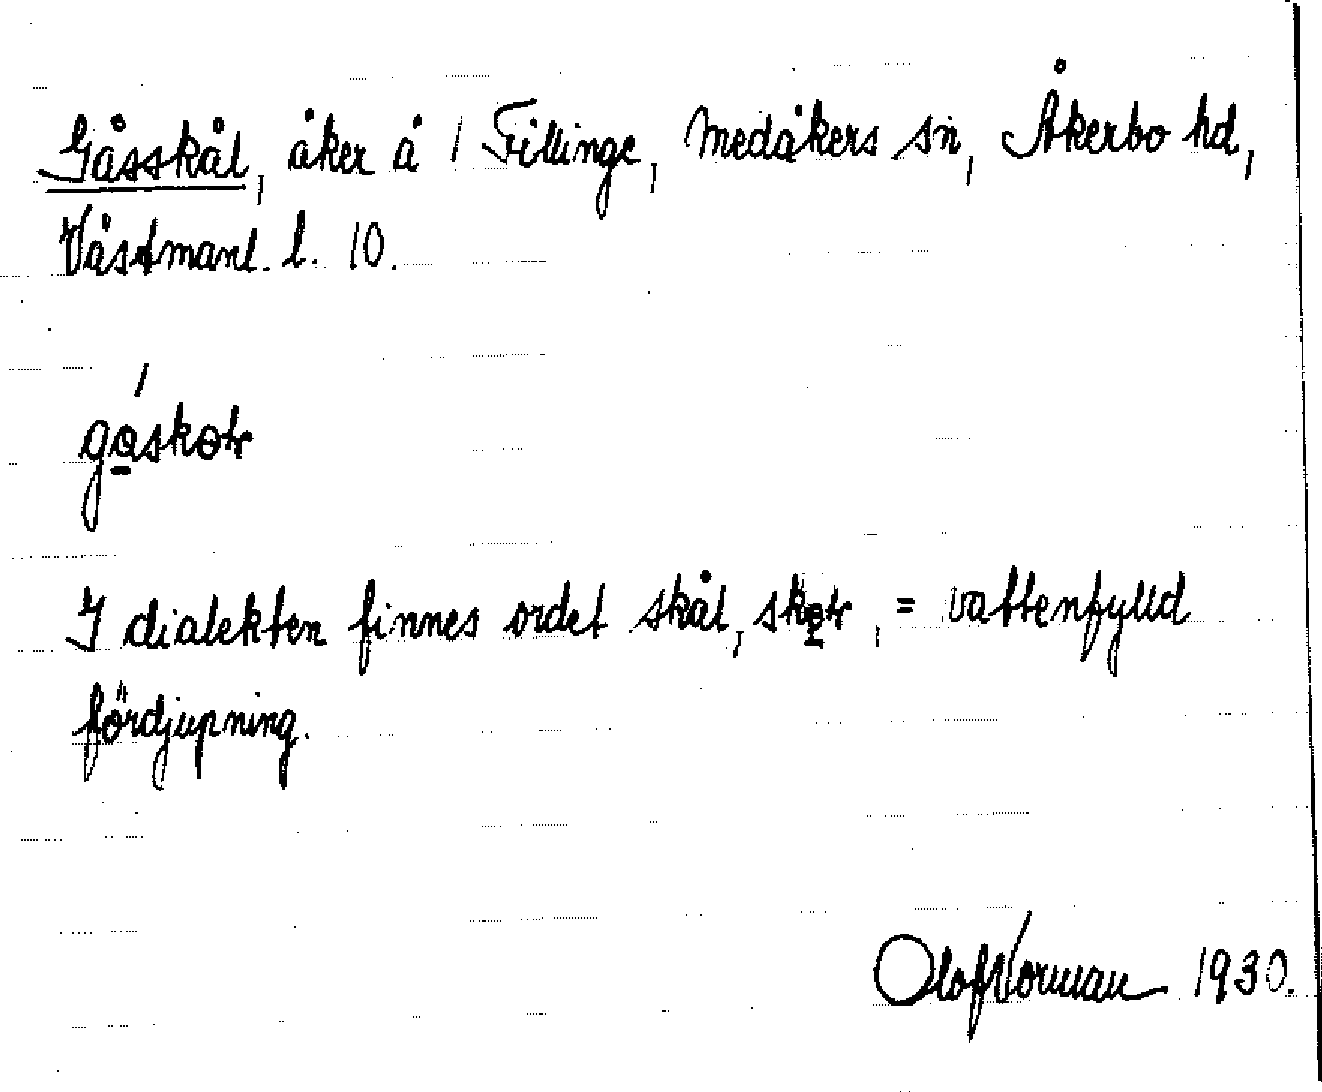 Gåsskål, åker å 1 Fillinge, Medåkers sn, Åkerbo hd,
Västmanl. l. 10.
I dialekten finnes ordet skål, = vattenfylld
fördjupning.
Olof Norman 1930.